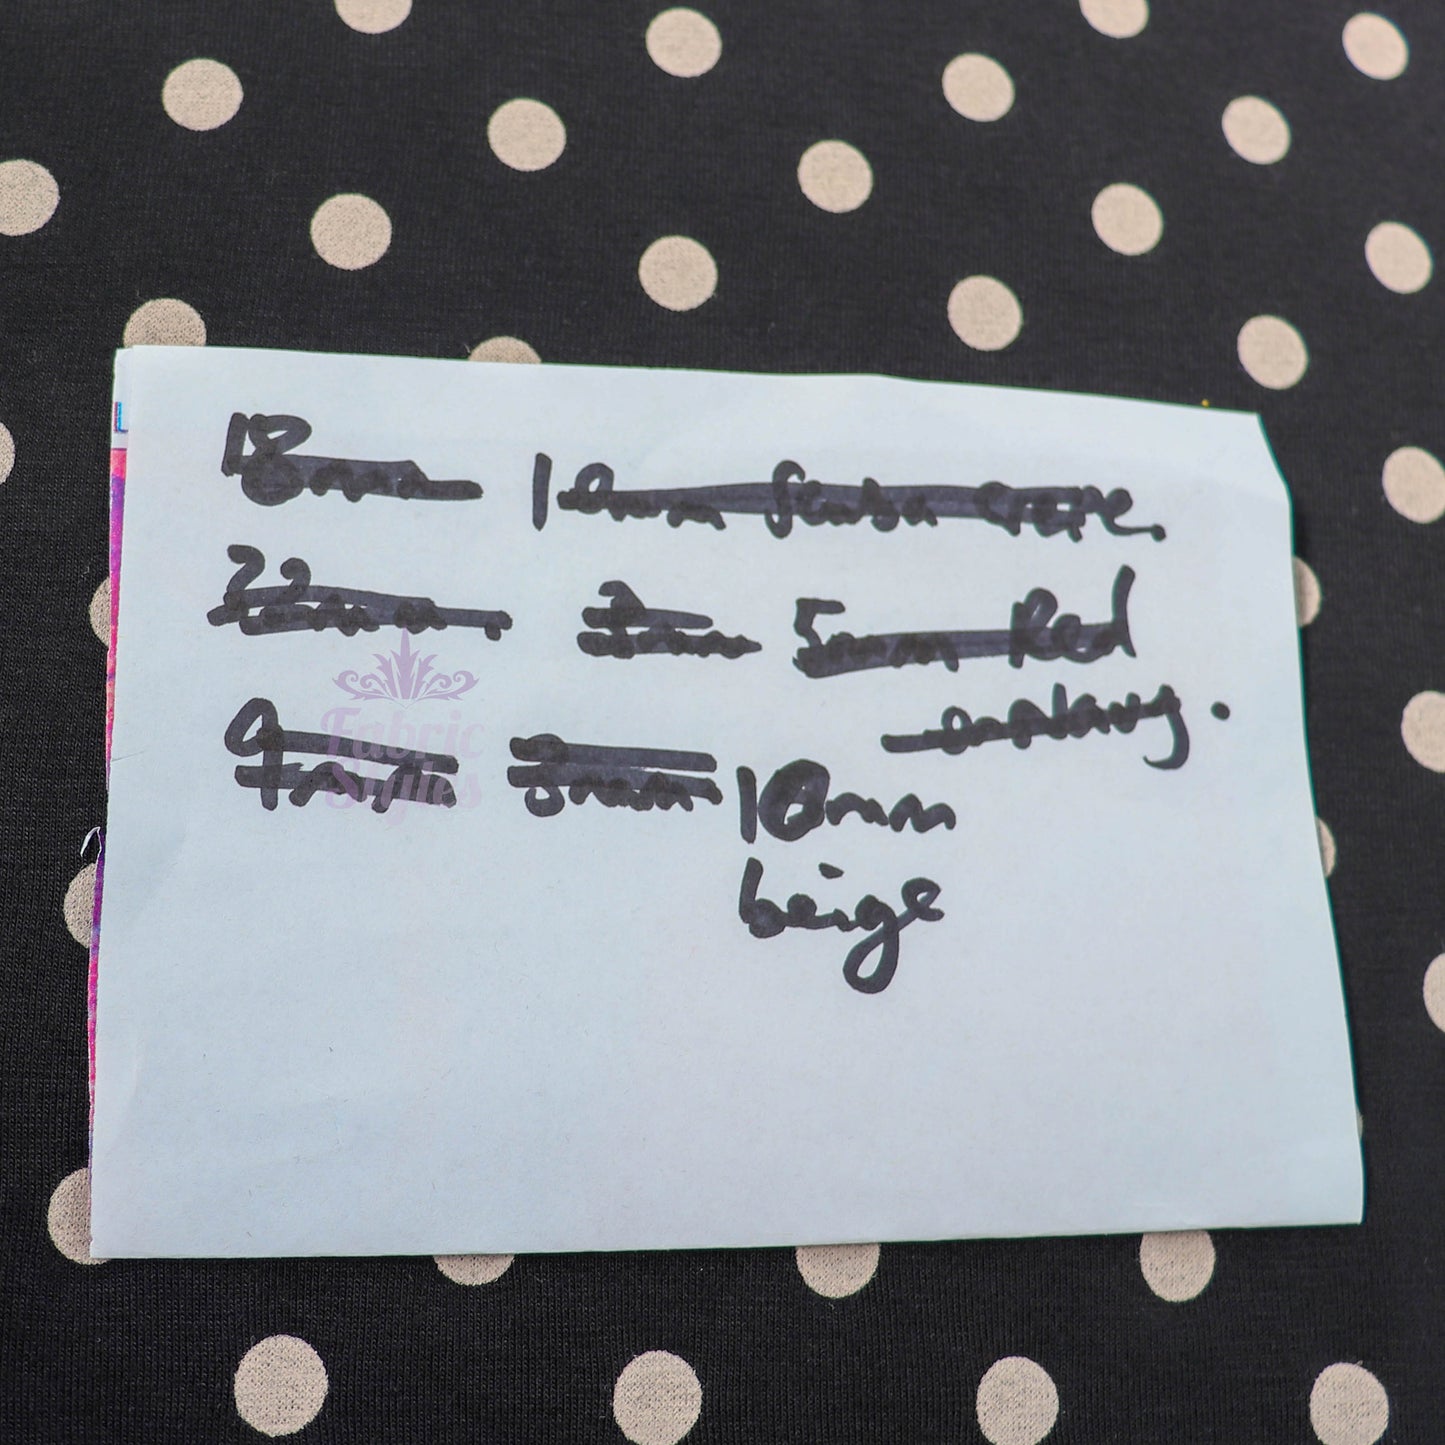 18mm 10mm Scuba crepe.
22mm. 3mm 5mm Red
on Navy.
9mm 8mm 10mm
beige
Fabric
Styles